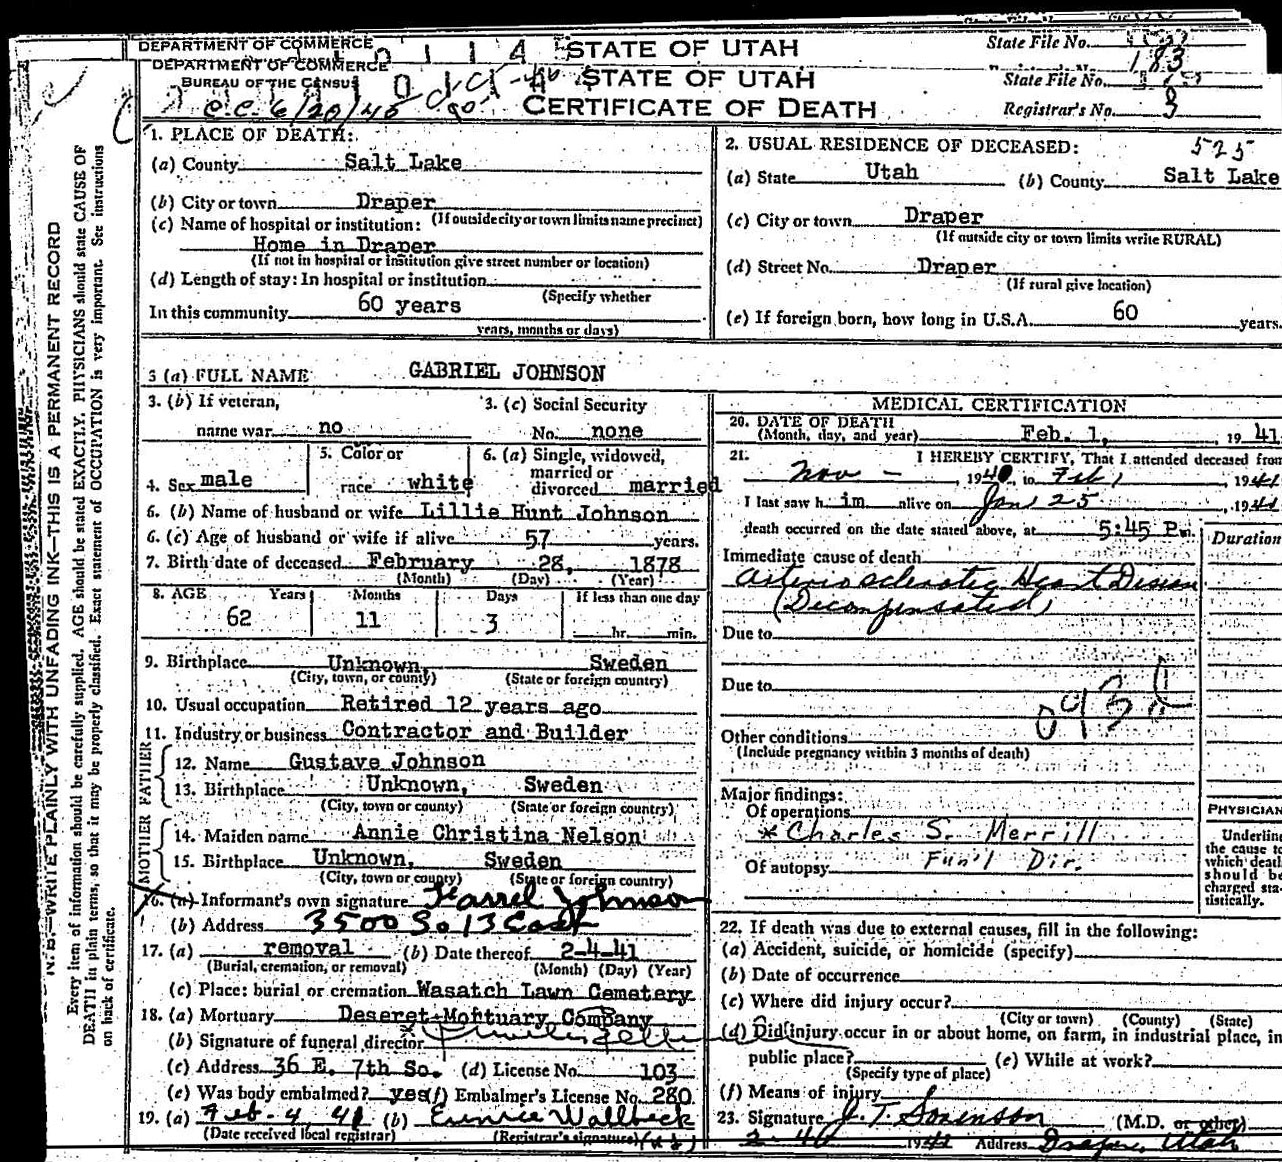 DEPARTMENT OF COMMERCE STATE OF UTAH State File No.
DEPARTMENT OF COMMERCE STATE OF UTAH State File No.
BUREAU OF THE CENSUS
C.C. 6/20/40 CERTIFICATE OF DEATH Registrar's No. 3
183
N.B.—WRITE PLAINLY WITH UNFADING INK—THIS IS A PERMANENT RECORD
Every item of information should be carefully supplied. AGE should be stated EXACTLY. PHYSICIANS should state CAUSE OF
DEATH in plain terms, so that it may be properly classified. Exact statement of OCCUPATION is very important. See instructions
on back of certificate.
1. PLACE OF DEATH:
(a) County Salt Lake
(b) City or town Draper
(If outside city or town limits name precinct)
(c) Name of hospital or institution:
Home in Draper
(If not in hospital or institution give street number or location)
(d) Length of stay: In hospital or institution
(Specify whether
In this community 60 years
years, months or days)
2. USUAL RESIDENCE OF DECEASED: 525
(a) State Utah (b) County Salt Lake
(c) City or town Draper
(If outside city or town limits write RURAL)
(d) Street No. Draper
(If rural give location)
(e) If foreign born, how long in U.S.A. 60 years.
3 (a) FULL NAME GABRIEL JOHNSON
3. (b) If veteran, 3. (c) Social Security
name war no No. none
5. Color or 6. (a) Single, widowed,
married or
4. Sex male race white divorced married
6. (b) Name of husband or wife Lillie Hunt Johnson
6. (c) Age of husband or wife if alive 57 years.
7. Birth date of deceased February 28, 1878
(Month) (Day) (Year)
8. AGE Years Months Days If less than one day
62 11 3 hr. min.
9. Birthplace Unknown, Sweden
(City, town, or county) (State or foreign country)
10. Usual occupation Retired 12 years ago
11. Industry or business Contractor and Builder
FATHER
12. Name Gustave Johnson
13. Birthplace Unknown, Sweden
(City, town or county) (State or foreign country)
MOTHER
14. Maiden name Annie Christina Nelson
15. Birthplace Unknown, Sweden
(City, town or county) (State or foreign country)
16. (a) Informant's own signature Johnson
(b) Address 3500 So 13 East
17. (a) removal (b) Date thereof 2-4-41
(Burial, cremation, or removal) (Month) (Day) (Year)
(c) Place: burial or cremation Wasatch Lawn Cemetery
18. (a) Mortuary Deseret Mortuary Company
(b) Signature of funeral director
(c) Address 36 E. 7th So. (d) License No. 103
(e) Was body embalmed? yes (f) Embalmer's License No. 280
19. (a) Feb. 4, 41 (b) Eunice Wallbeck
(Date received local registrar) (Registrar's signature)
MEDICAL CERTIFICATION
20. DATE OF DEATH
(Month, day, and year) Feb. 1, 19 41
21. I HEREBY CERTIFY, That I attended deceased from
Nov - , 1940, to Feb 1, 1941
I last saw h im alive on Jan 25, 1941
death occurred on the date stated above, at 5:45 P m.
Duration
Immediate cause of death
Arteriosclerotic Heart Disease
(Decompensated)
Due to
Due to
Other conditions
(Include pregnancy within 3 months of death)
Major findings:
Of operations
* Charles S. Merrill
Of autopsy Fun'l Dir.
PHYSICIAN
Underline
the cause to
which death
should be
charged sta-
tistically.
22. If death was due to external causes, fill in the following:
(a) Accident, suicide, or homicide (specify)
(b) Date of occurrence
(c) Where did injury occur?
(City or town) (County) (State)
(d) Did injury occur in or about home, on farm, in industrial place, in
public place? (e) While at work?
(Specify type of place)
(f) Means of injury
23. Signature J. T. Sorenson (M.D. or other)
Address Draper, Utah